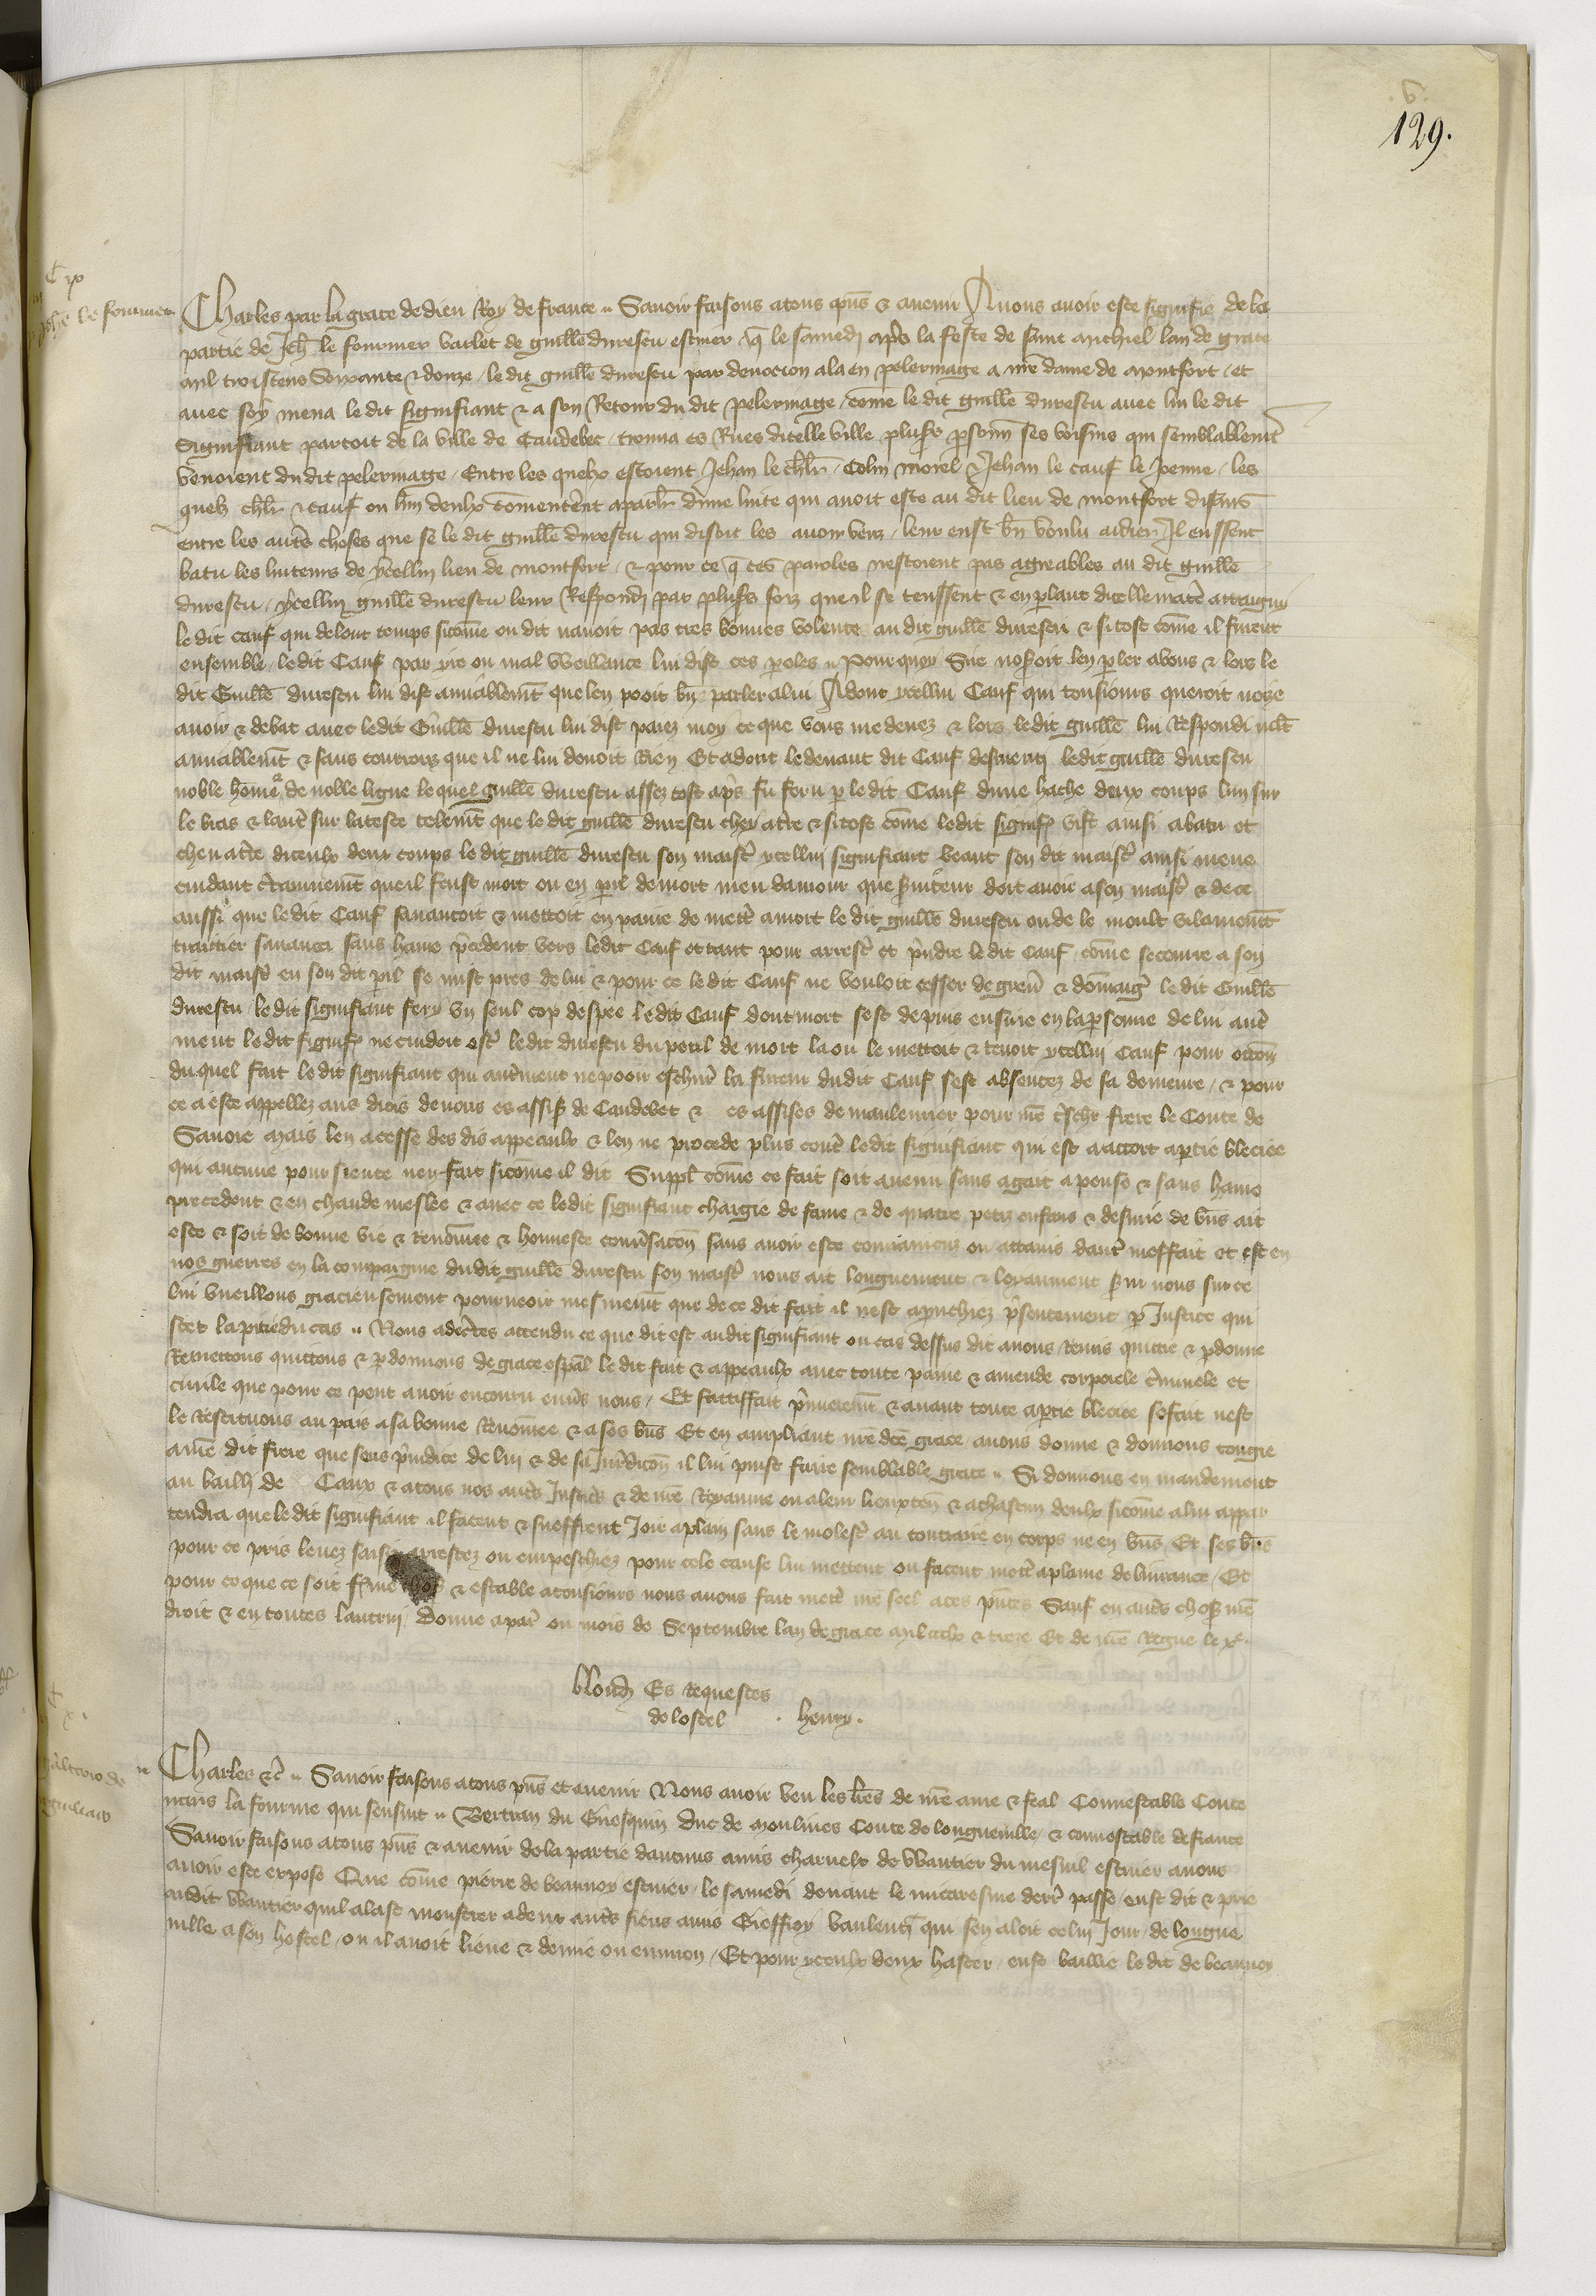 .6.
129.
Joh̄ le fournier
Charles par la grace de dieu Roy de france ․ Sauoir faisons a tous pn̄s & auenir Nous auoir este signifie de la
partie de Jeh̄ le fournier varlet de guillē durescu escuier q̄ le samedi apr̄s la feste de saint michiel lan de grace
mil troiscens Soixante & donze / le dit guillē durescu par deuocion ala en pelerinage a nr̄e dame de montfort / et
auec soy mena le dit signifiant & a son Retour du dit pelerinage / com̄e le dit guillē durescu auec lui le dit
Signifiant partoit de la ville de Caudebec / trouua es Rues dicelle ville plus̄rs p̄sonn̄ ses voisins qui semblablem̄t
venoient du dit pelerinage / Entre les quelx estoient Jehan le ch̄lr̄ / Colin morel & Jehan le cauf le Joenne / les
quelz ch̄lr̄ & cauf ou lun deulx com̄encer̄ent a parl̄r dune luite qui auoit este au dit lieu de montfort disans
entre les autr̄s choses que se le dit guillē durescu qui disoit les auoir veuz / leur eust bn̄ voulu aidier Il eussent
batu les luiteurs de ycellui lieu de montfort / & pour ce q̄ ces paroles nestoient pas agreables au dit guillē
durescu / ycellui guillē durescu leur Respondi par plus̄rs foiz que il se teussent & en p̄lant dicelle matir̄e attaigni
le dit cauf qui de lonc temps sicom̄e on dit nauoit pas tres bonnes volente au dit guillē durescu & si tost com̄e il furent
ensemble / le dit Cauf par yre ou mal weillance lui dist ces p̄oles ․ Pour quoy Sire nos̄oit len p̄ler a vous & lors le
dit Guillē durescu lui dist amiablem̄t que len pooit bn̄ parler a lui Adont ycellui Cauf qui tousiours queroit noise
auoir & debat auec le dit Guillē durescu lui dist paiez moy ce que vous me deuez & lors le dit guillē lui Respondi
amiablem̄t & sans courrouz que il ne lui deuoit Rien Et adont le deuant dit Cauf desmenti le dit guillē durescu
noble hom̄e de noble ligne le quel Guillē durescu assez tost apr̄s fu feru p̄ le dit Cauf dune hache deux coups lun sur
le bras & lautr̄ sur la teste telem̄t que le dit guillē durescu chey a tr̄re & si tost com̄e le dit signif̄ vist ainsi abatu et
cheu a tr̄re diceulx deux coups le dit guillē durescu son maistr̄ ycellui signifiant veant son dit maistr̄ ainsi mene
cuidant cr̄tainnem̄t que il feust mort ou en p̄il de mort meu damour que s̄uiteur doit auoir a son maistr̄ & de ce
aussi que le dit Cauf sauancoit & mettoit en paine de mettr̄ a mort le dit guillē durescu ou de le moult vilainem̄t
traictier sauanca sans hayne pr̄cedent vers le dit Cauf et tant pour arrestr̄ et pr̄ndre le dit Cauf / com̄e secourre a son
dit maistr̄ en son dit p̄il se mist pres de lui & pour ce le dit Cauf ne vouloit cesser de greuer̄ & dom̄aigr̄ le dit Guillē
durescu / le dit signifiant fery vn seul cop despee le dit Cauf dont mort sest depuis ensuie en la p̄sonne de lui autr̄
ment le dit signif̄ ne cuidoit ostr̄ le dit durescu du peril de mort la ou le mettoit & tenoit ycellui Cauf pour occ̄on
du quel fait le dit signifiant qui autr̄ment ne pooit eschiur̄ la fureur du dit Cauf sest absentez de sa demeure / & pour
ce a este appellez aus drois de nous es assis̄ de Caudebec & es assises de maulevrier pour nr̄e tr̄schr̄ frere le Conte de
Sauoie mais len a cesse des dis appeaulx & len ne procede plus contr̄ le dit signifiant qui est a accort a p̄tie bleciee
qui aucune poursieute nen fait sicom̄e il dit Suppl̄ com̄e ce fait soit auenu sans agait apense & sans hayne
precedent & en chaude meslee & auec ce le dit signifiant chargie de fame & de quatre petiz enfans & desnue de bn̄s ait
este & soit de bonne vie & Renom̄ee & honneste conūsacon̄ sans auoir este conuaincuz ou attains dautr̄ meffait et est en
nos guerres en la compaignie du dit guillē durescu son maistr̄ nous ait longuement & loyaument s̄ui nous sur ce
lui vueillons gracieusement pourueoir mesmem̄t que de ce dit fait il nest aprouchiez pr̄sentement p̄ Justice qui
scet la pitie du cas ․ Nous adecr̄tes attendu ce que dit est au dit signifiant ou cas dessus dit auons Remis quitte & p̄donne
Remettons quittons & p̄donnons de grace esp̄al le dit fait & appeaulx auec toute paine & amende corporele cr̄iminele et
ciuile que pour ce peut auoir encouru enūs nous / Et sattiffait pr̄mieremt̄ & auant toute a p̄tie bleciee se fait nest
le Restituons au pais a sa bonne Renom̄ee & a ses bn̄s Et en ampliant nr̄e dc̄e grace / auons donne & donnons congie
a nr̄e dit frere que sens pr̄iudice de lui & de sa Jur̄dicon̄ il lui puist faire semblable grace ․ Si donnons en mandement
au bailli de Caux & a tous nos autr̄s Justic̄ & de nr̄e Royaume ou a leur lieuxten̄ & a chascun deulx sicom̄e a lui appar
tendra que le dit signifiant il facent & sueffrent Joir a plain sans le molestr̄ au contraire en corps ne en bn̄s Et ses bn̄s
pour ce pris leuez saisiz arrestez ou empeschiez pour cele cause lui mettent ou facent mettr̄ a plaine deliurance / Et
pour ce que ce soit ferme chos̄ & estable a tousiours nous auons fait mettr̄ nr̄e seel a ces pn̄tes Sauf en autr̄s chos̄ nr̄e
droit & en toutes lautrui / Donne a par̄ ou mois de Septembre lan de grace mil ccclx & treze Et de nr̄e Regne le xe.
blondj Es requestes
de lostel . henry .
Charles &c̄ ․ Sauoir faisons a tous pn̄s et auenir Nous auoir veu les lr̄es de nr̄e ame & feal Connestable Conte
nans la fourme qui sensuit ․ Bertran du Guesquin duc de moulines Conte de longueuille / & connestable de france
Sauoir faisons a tous pn̄s & auenir de la partie daucuns amis charnelx de Wautier du mesnil escuier a nous
auoir este expose Que com̄e pierre de beaunoy escuier / le samedi deuant le micaresme derr̄ passe / eust dit & prie
audit Wautier quil alast monstrer a deux autr̄s siens amis Gieffroy qui sen aloit celui Jour / de longue
uille a son hostel / ou il auoit lieue & demie ou enuiron / Et pour yceulx deux haster / eust baillie le dit de beaunoy